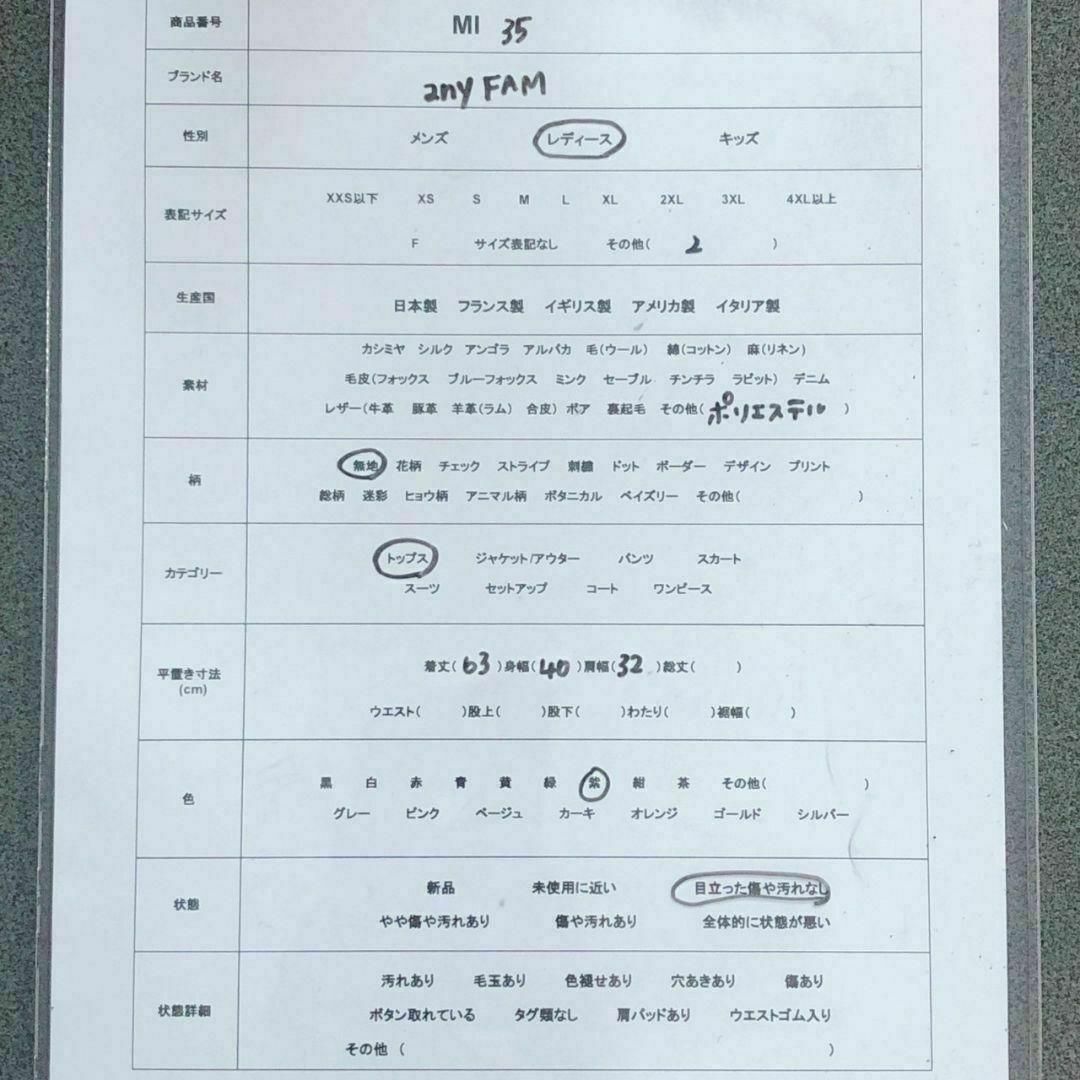 商品番号 MI 35
ブランド名 any FAM
性別 メンズ レディース キッズ
表記サイズ XXS以下 XS S M L XL 2XL 3XL 4XL以上
F サイズ表記なし その他( 2 )
生産国 日本製 フランス製 イギリス製 アメリカ製 イタリア製
素材 カシミヤ シルク アンゴラ アルパカ 毛(ウール) 綿(コットン) 麻(リネン)
毛皮(フォックス ブルーフォックス ミンク セーブル チンチラ ラビット) デニム
レザー(牛革 豚革 羊革(ラム) 合皮) ボア 裏起毛 その他( ポリエステル )
柄 無地 花柄 チェック ストライプ 刺繍 ドット ボーダー デザイン プリント
総柄 迷彩 ヒョウ柄 アニマル柄 ボタニカル ペイズリー その他( )
カテゴリー トップス ジャケット/アウター パンツ スカート
スーツ セットアップ コート ワンピース
平置き寸法 (cm) 着丈( 63 )身幅( 40 )肩幅( 32 )総丈( )
ウエスト( )股上( )股下( )わたり( )裾幅( )
色 黒 白 赤 青 黄 緑 紫 紺 茶 その他( )
グレー ピンク ベージュ カーキ オレンジ ゴールド シルバー
状態 新品 未使用に近い 目立った傷や汚れなし
やや傷や汚れあり 傷や汚れあり 全体的に状態が悪い
状態詳細 汚れあり 毛玉あり 色褪せあり 穴あきあり 傷あり
ボタン取れている タグ類なし 肩パッドあり ウエストゴム入り
その他 ( )